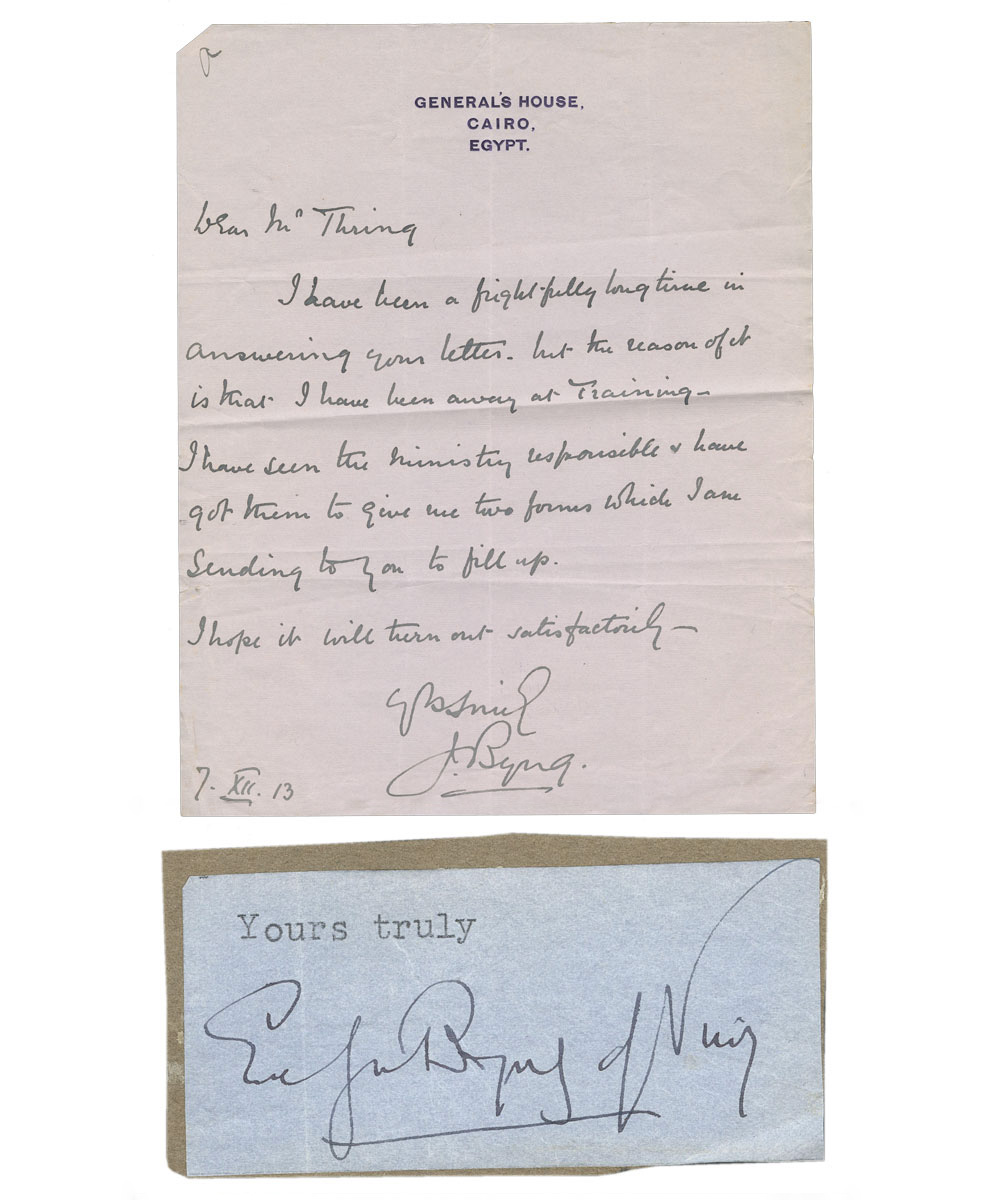 GENERAL'S HOUSE,
CAIRO,
EGYPT.
Dear Mr Thring
I have been a frightfully long time in
answering your letter - but the reason of it
is that I have been away at Training -
I have seen the Ministry responsible & have
got them to give me two forms which I am
sending to you to fill up.
I hope it will turn out satisfactorily -
J. Byng.
7. XII. 13
Yours truly
Byng of Vimy